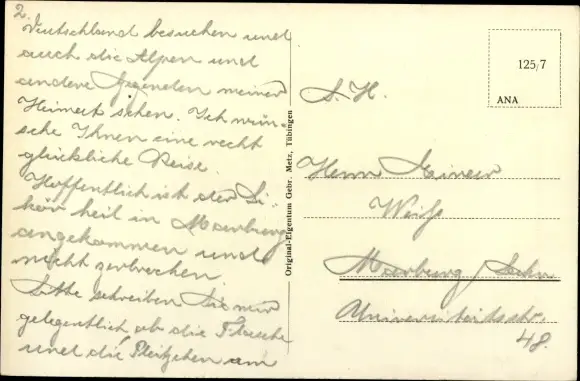 2.
Deutschland besuchen und
auch die Alpen und
andere Gegenden meiner
Heimat sehen. Ich wün-
sche Ihnen eine recht
glückliche Reise.
Hoffentlich ist der Li-
kör heil in Marburg
angekommen und
nicht zerbrochen
Bitte schreiben Sie mir
gelegentlich ob die Flasche
und die am
Original-Eigentum Gebr. Metz, Tübingen
125/7
ANA
S. H.
Herrn
Weiß
Marburg/Lahn
Universitätsstr.
48.